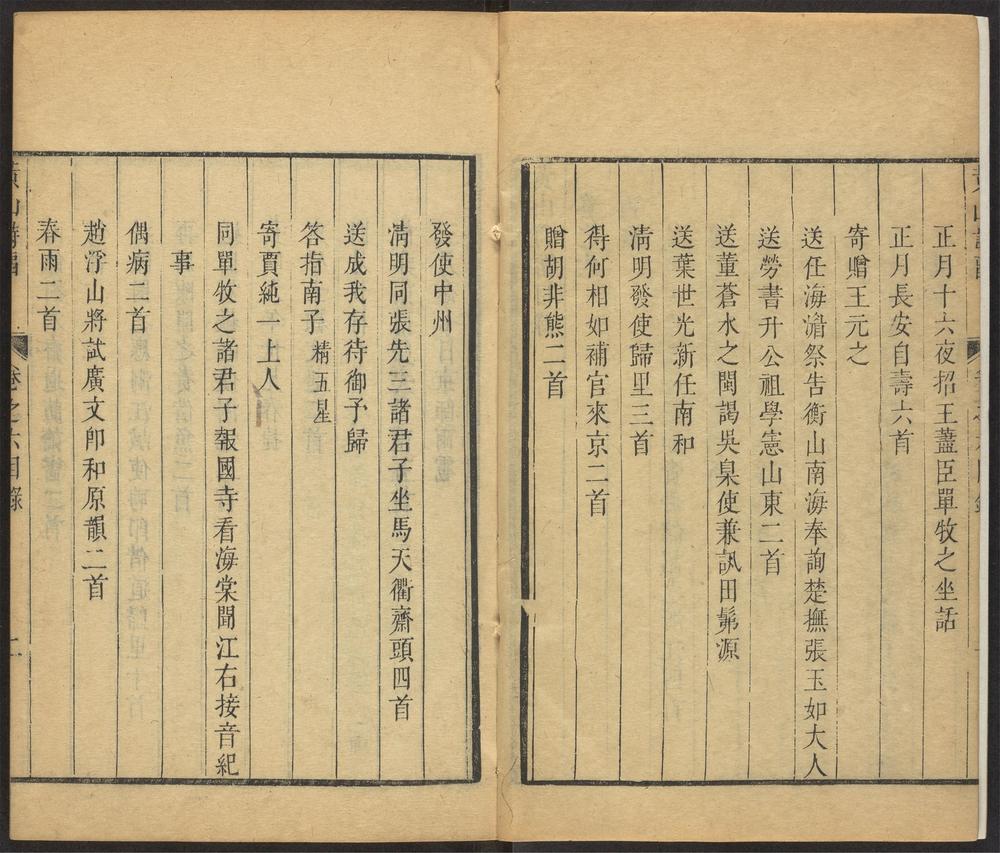 正月十六夜招王藎臣單牧之坐話
正月長安自壽六首
寄贈王元之
送任海湑祭告衡山南海奉詢楚撫張玉如大人
送勞書升公祖學憲山東二首
送董蒼水之閩謁吳臬使兼訊田髴源
送葉世光新任南和
清明發使歸里三首
得何相如補官來京二首
贈胡非熊二首
發使中州
清明同張先三諸君子坐馬天衢齋頭四首
送成我存待御予歸
答指南子精五星
寄賈純一上人
同單牧之諸君子報國寺看海棠聞江右接音紀
事
偶病二首
趙浮山將試廣文卽和原韻二首
春雨二首
卷之六目錄
二